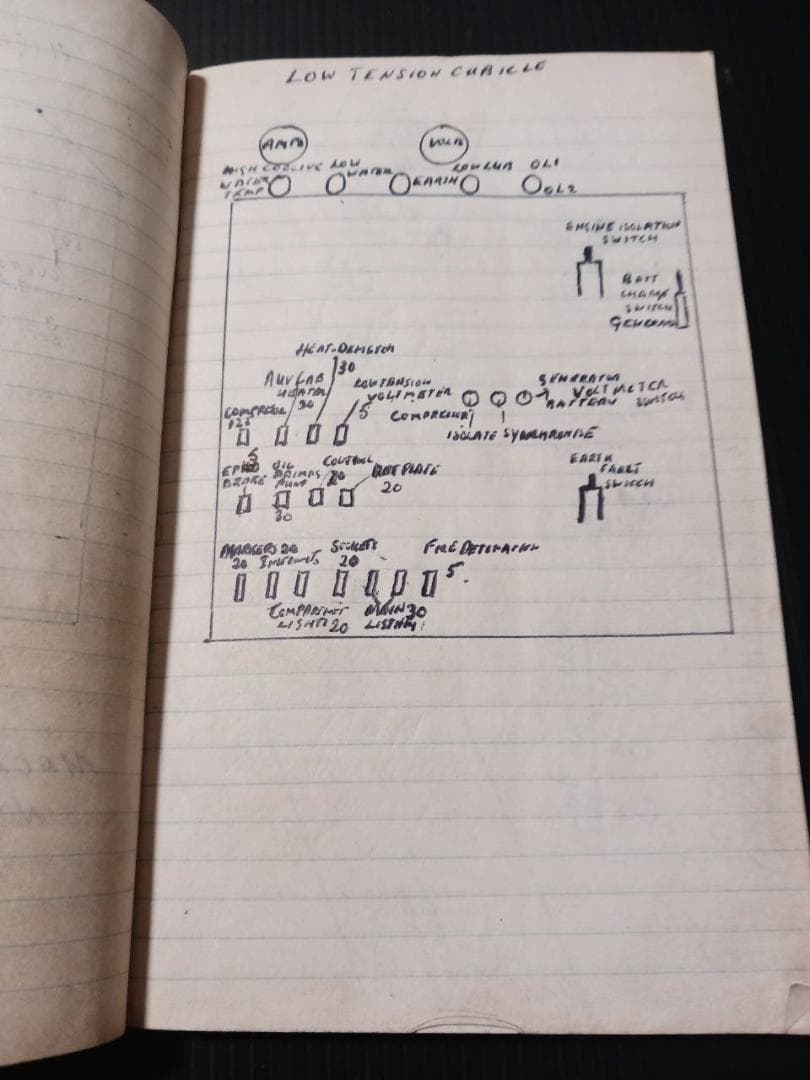 LOW TENSION CUBICLE
AMPS
VOLTS
HIGH COOLING LOW LOW LUB OL1
WATER WATER EARTH OL2
TEMP
ENGINE ISOLATION
SWITCH
BATT
CHANGE
SWITCH
HEAT
30
AUX CAB LOW TENSION
HEATER VOLTMETER
30 5
GENERATOR
VOLTMETER
BATTERY SWITCH
COMPRESSOR
125
COMPRESSOR
ISOLATE SYNCHRONISE
5 OIL CONTROL
BRAKE PRIMING 20 HOTPLATE
PUMP 20
30
EARTH
FAULT
SWITCH
MARKERS 20 SOCKETS FIRE
20 20 5.
COMPARTMENT MAIN 30
LIGHTS 20